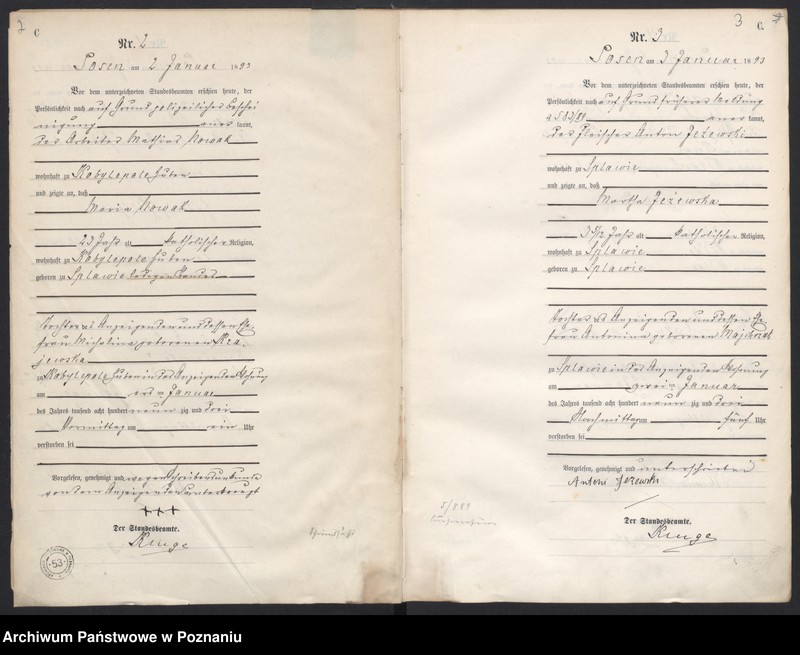 2
C
Nr. 2
Posen am 2 Januar 1893
Vor dem unterzeichneten Standesbeamten erschien heute, der
Persönlichkeit nach auf Grund polizeilicher Beschei
nigung anerkannt,
der Arbeiter Mathias Nowak
wohnhaft zu Kobylepole Huben
und zeigte an, daß
Maria Nowak
23 Jahr alt katholischer Religion,
wohnhaft zu Kobylepole Huben
geboren zu Splawie
Tochter des Anzeigenden und dessen Ehe-
frau Michalina geborenen Kra-
jewska
zu Kobylepole Huben in des Anzeigenden Wohnung
am Januar
des Jahrs tausend acht hundert neun zig und drei
Vormittag um ein Uhr
verstorben sei
Vorgelesen, genehmigt und wegen Schreibensunkunde
von dem Anzeigenden unterkreuzt
+++
Der Standesbeamte.
Kruge
Schwindsucht
53
3
C.
Nr. 3
Posen am 3 Januar 1893
Vor dem unterzeichneten Standesbeamten erschien heute, der
Persönlichkeit nach auf Grund früherer Meldung
anerkannt,
der Fleischer Anton Jeżewski
wohnhaft zu Splawie
und zeigte an, daß
Martha Jeżewska
Jahr alt katholischer Religion,
wohnhaft zu Splawie
geboren zu Splawie
Tochter des Anzeigenden und dessen Ehe-
frau Antonina geborenen
zu Splawie in des Anzeigenden Wohnung
am zwei Januar
des Jahrs tausend acht hundert neun zig und drei
Nachmittag um fünf Uhr
verstorben sei
Vorgelesen, genehmigt und unterschrieben
Antoni Jeżewski
5/889
Der Standesbeamte.
Kruge
Archiwum Państwowe w Poznaniu